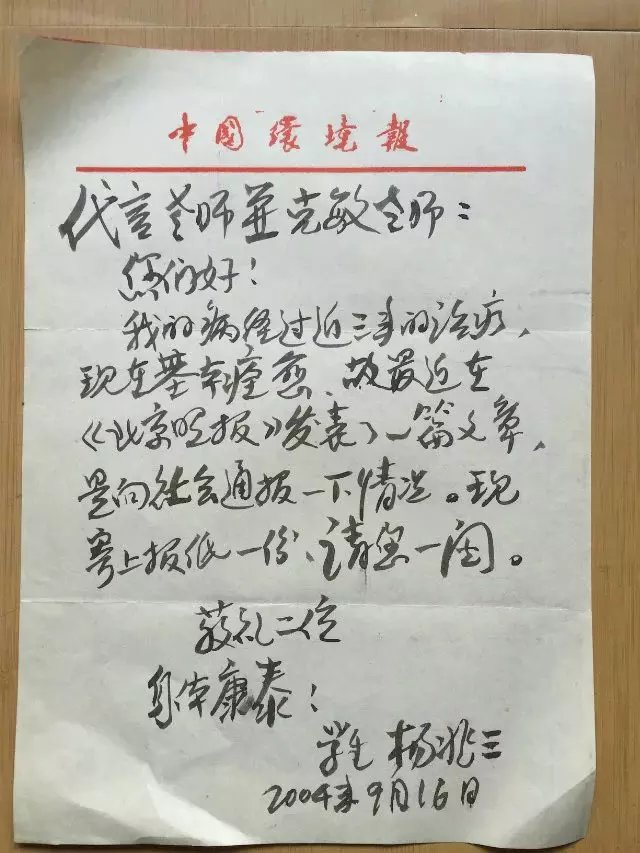 中国環境報
代言老师並克敏老师：
您们好！
我的病经过近三年的治疗，
现在基本痊愈、故最近在
《北京晚报》发表了一篇文章，
是向社会通报一下情况。现
寄上报纸一份、请您一阅。
敬礼二位
身体康泰！
学生 杨兆三
2004年9月16日